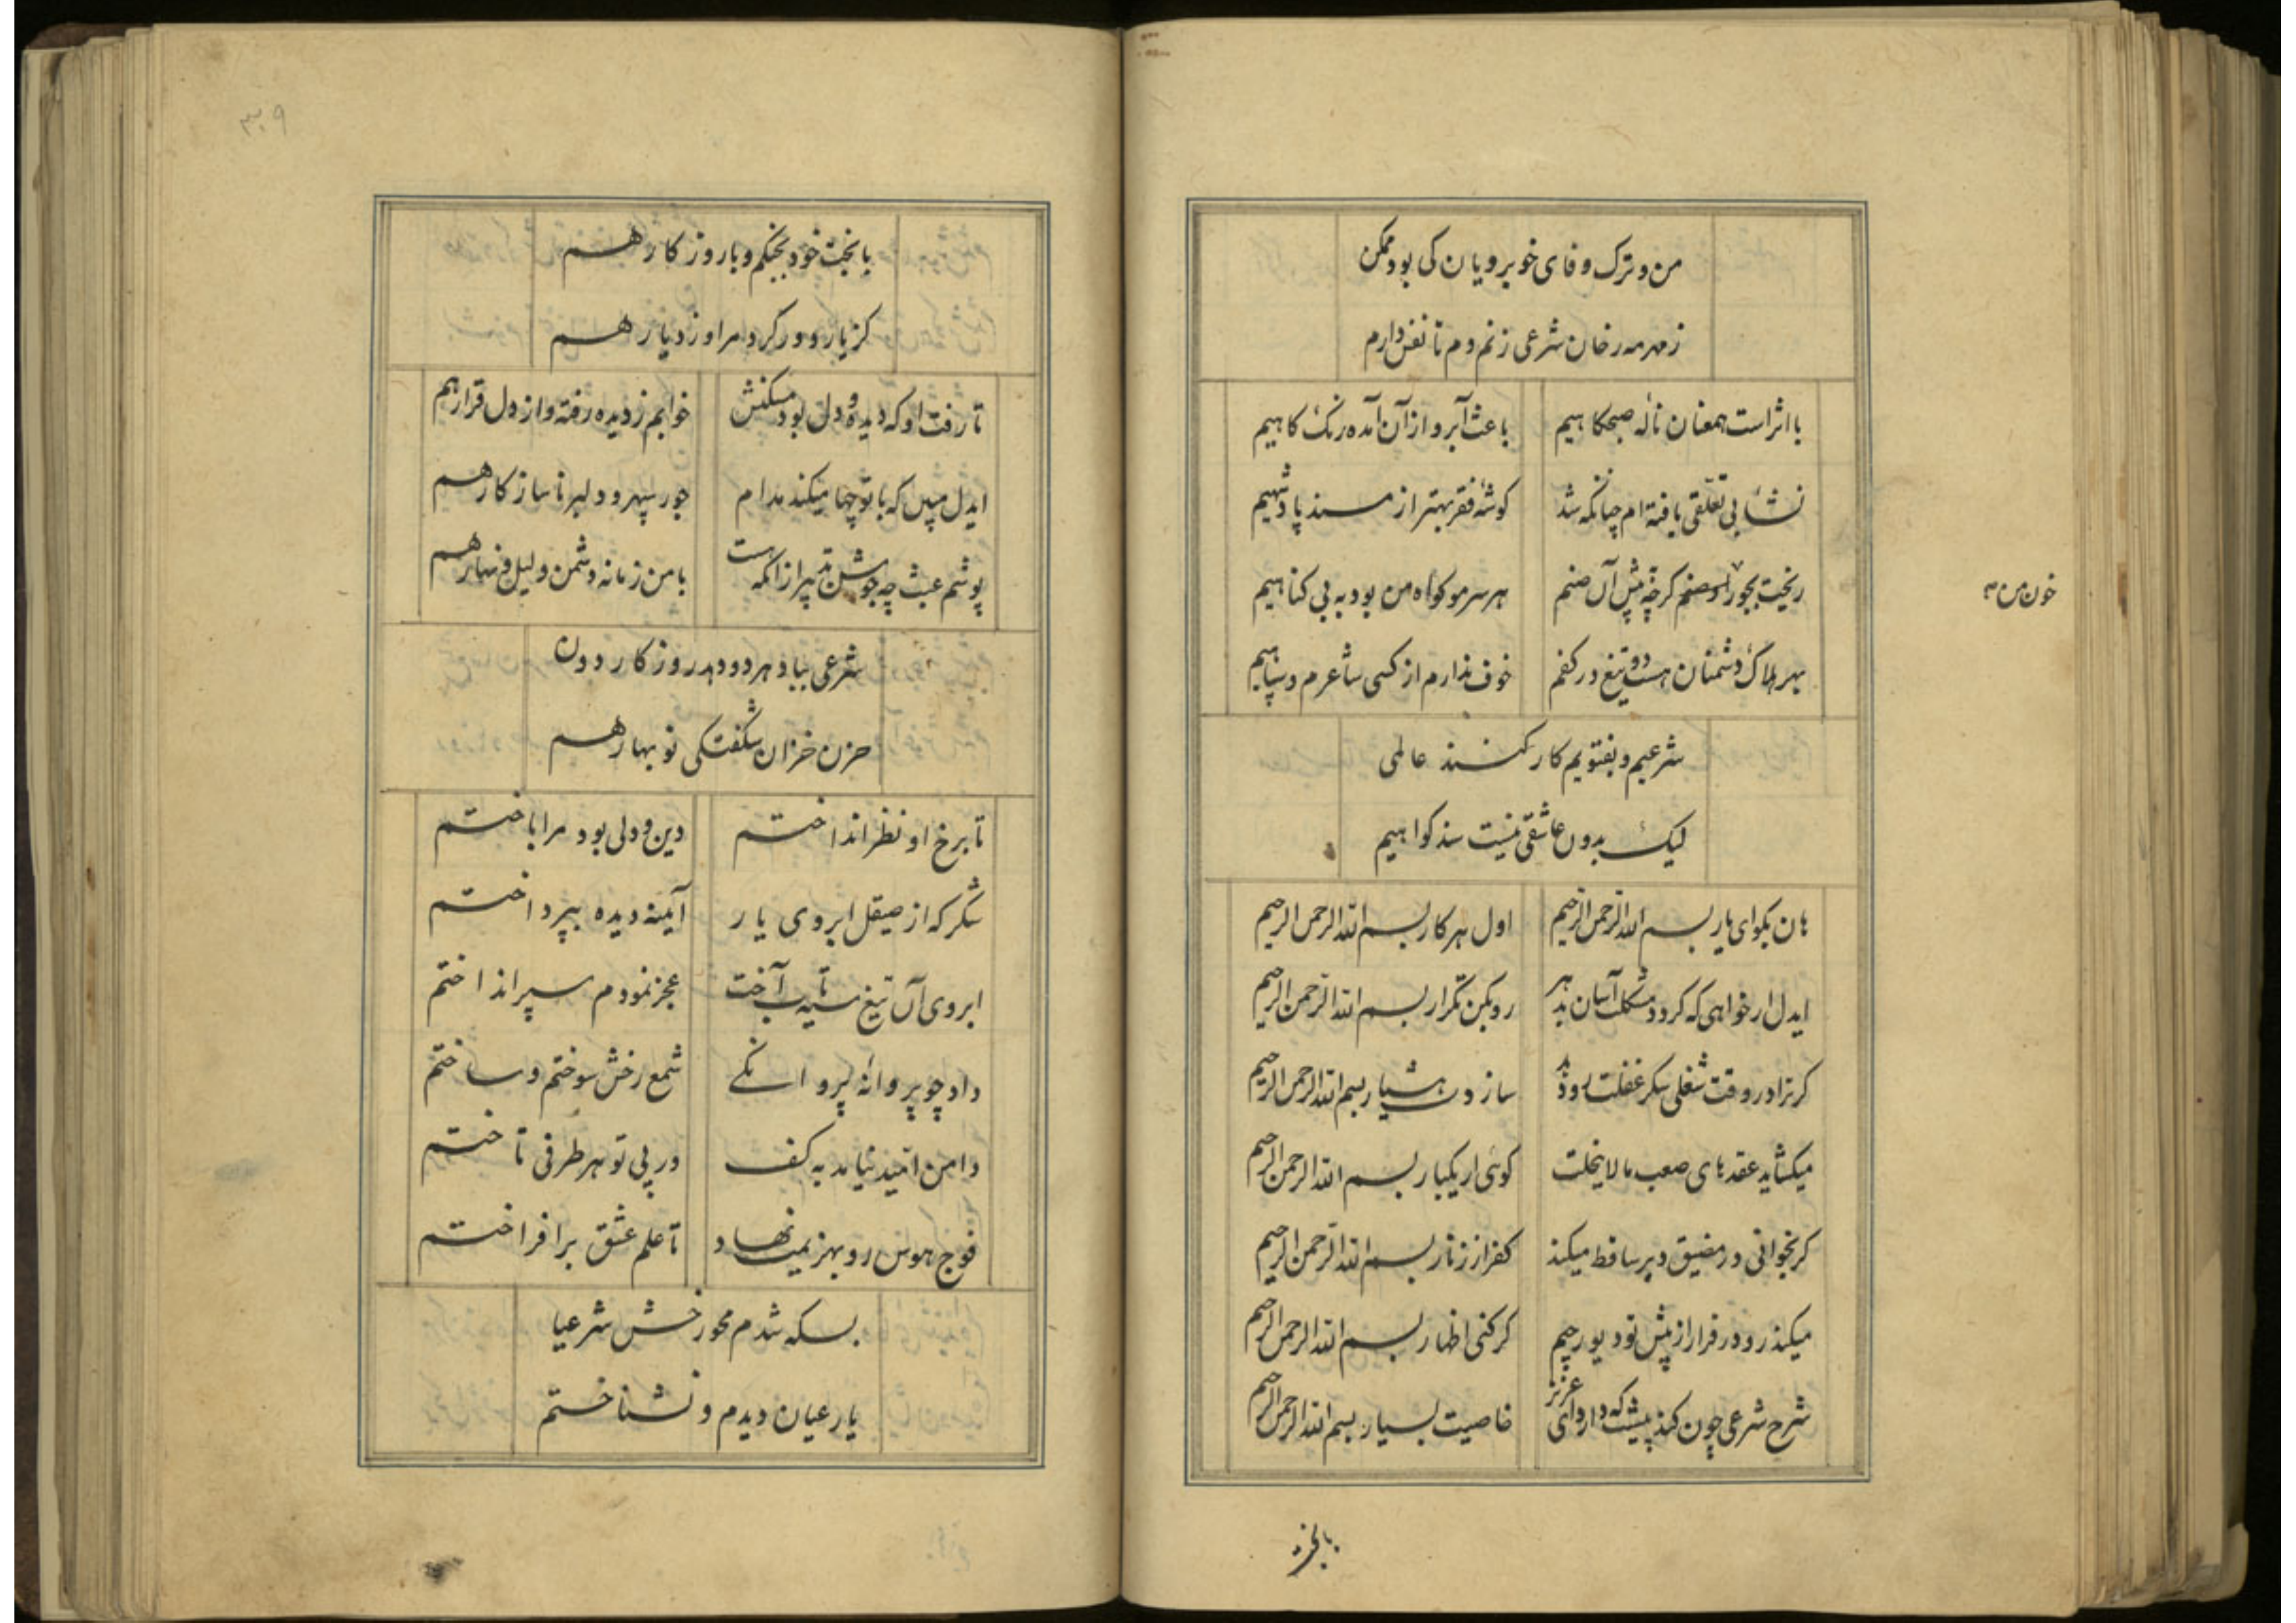 من و ترک وفای خوبرویان کی بود ممکن
ز مهر مه رخان شرعی زنم دم تا نفس دارم
با اثر است همعنان نالهٔ صبحکاهیم
باعث آبرو از آن آمده رنک کاهیم
نشأ بی تعلقی یافته ام چنانکه شد
کوشهٔ فقر بهتر از مسند پادشهیم
ریخت بجور کرچه پیش آن صنم
خون من
هر سر مو کواه من بود به بی کناهیم
بهر هلاک دشمنان هست دو تیغ در کفم
خوف ندارم از کسی شاعرم و سپاهیم
شرعیم و بفتویم کار کنند عالمی
لیک بدون عاشقی نیست سند کواهیم
هان بکو ای یار بسم الله الرحمن الرحیم
اول هر کار بسم الله الرحمن الرحیم
ایدل ار خواهی که کردد مشکلت آسان بدهر
رو بکن تکرار بسم الله الرحمن الرحیم
کر ترا در وقت شغلی سکر غفلت رو دهد
سازدت هشیار بسم الله الرحمن الرحیم
میکشاید عقدهای صعب ما لاینحلت
کوئی ار یکبار بسم الله الرحمن الرحیم
کر بخوانی در مضیق دیر ساقط میکند
کفر از زنار بسم الله الرحمن الرحیم
میکند رو در فرار از پیش تو دیو رجیم
کر کنی اظهار بسم الله الرحمن الرحیم
شرح شرعی چون کند پیشت که دارد ای عزیز
خاصیت بسیار بسم الله الرحمن الرحیم
بابخت
۳۰۹
با بخت خود بجنکم و با روزکار هم
کز یار دور کرد مرا وز دیار هم
تا رفت او که دیده و دل بود مسکنش
خوابم ز دیده رفته و از دل قرار هم
ایدل ببین که با تو چها میکند مدام
جور سپهر و دلبر ناسازکار هم
پوشم عبث چه جوشن تدبیر از آنکه هست
با من زمانه دشمن و لیل و نهار هم
شرعی بباد هر دو دهد روزکار دون
حزن خزان شکفتکی نوبهار هم
تا برخ او نظر انداختم
دین و دلی بود مرا باختم
شکر که از صیقل ابروی یار
آینه دیده بپرداختم
ابروی آن تیغ سیه تاب آخت
عجز نمودم سپر انداختم
داد چو پروانهٔ پروانکی
شمع رخش سوختم و ساختم
دامن امید نیامد به کف
در پی تو هر طرفی تاختم
فوج هوس رو بهزیمت نهاد
تا علم عشق برافراختم
بسکه شدم محو رخش شرعیا
یار عیان دیدم و نشناختم